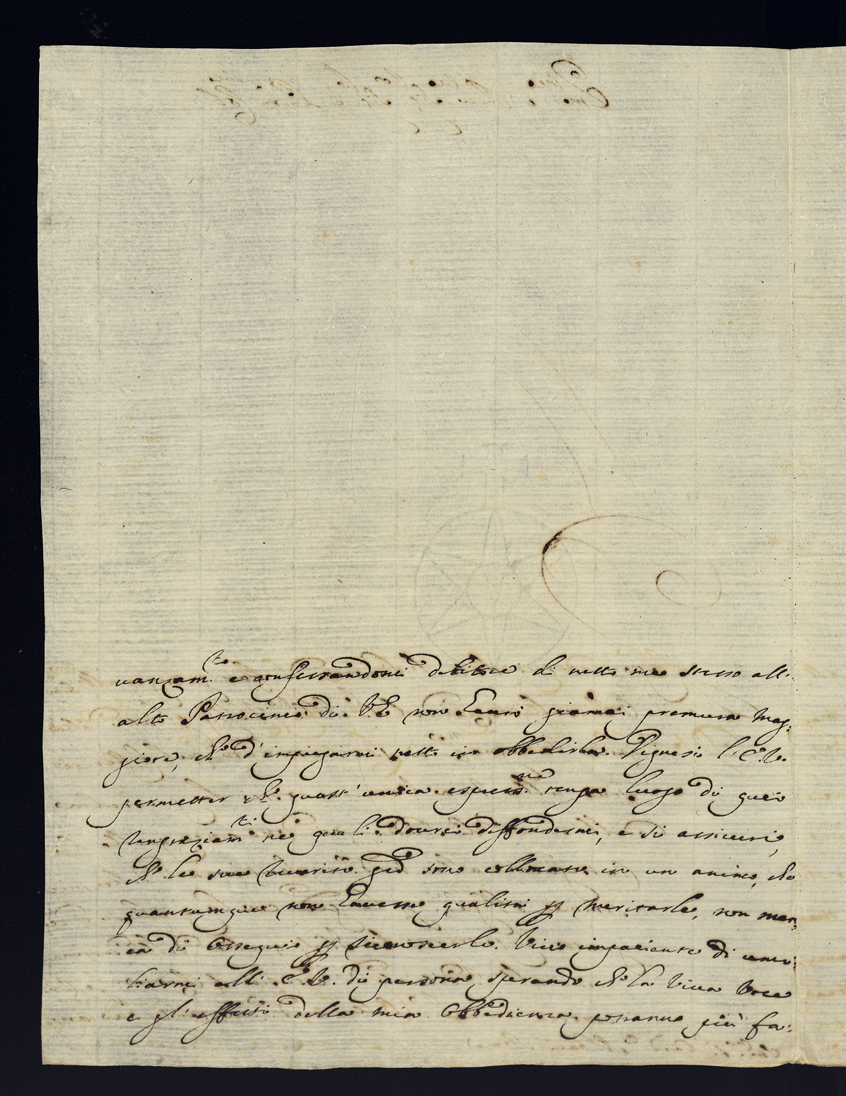 vanzam.to e confessandomi debitore di tutto me stesso all'
alto Patrocinio di V.E. non havrò giamai premura mag:
giore, che d'impiegarmi tutto in obbedirla. Degnesi l'E.V.
permetter che quest'unica espress.ne tenga luogo di quei
ringraziam.ti ne quali dovrei diffondermi, e si assicuri,
che le sue
sono collocate in un animo, che
quantunque non havesse qualità per meritarle, non man:
ca di ossequio per riconoscerle. Vivo impaziente di umi:
liarmi all'E.V. di persona sperando che la viva voce
e gl'effetti della mia obbedienza potranno più fa: